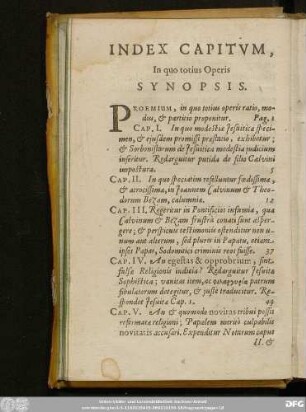 INDEX CAPITVM,
In quo totius Operis
SYNOPSIS.
PROEMIUM, in quo totius operis ratio, mo-
dus, & partitio proponitur. Pag. 1
CAP. I. In quo modestiæ Jesuiticæ speci-
men, & ejusdem promissi præstatio, exhibetur;
& Sorbonistarum de Jesuitica modestia judicium
inseritur. Redarguitur putida de filio Calvini
impostura. 5
CAP. II. In quo speciatim refelluntur fœdissimæ
& atrocissimæ, in Joannem Calvinum & Theo-
dorum Bezam, calumniæ. 12
CAP. III. Regeritur in Pontificios infamia, qua
Calvinum & Bezam frustrà conati sunt asper-
gere; & perspicuis testimoniis ostenditur non u-
num aut alterum, sed plures in Papatu, etiam
ipsos Papas, Sodomitici criminis reos fuisse. 37
CAP. IV. An egestas & opprobrium, sint
falsæ Religionis indicia? Redarguitur Jesuitæ
Sophistica; vanitas item, ac patrum
fibulatorum detegitur, & justè traducitur. Re-
spondet Jesuitæ Cap. 1. 49
CAP. V. An & quomodo novitas tribui possit
reformatæ religioni; Papalem meritò culpabilis
novitatis accusari. Expenditur Notarum caput
II. &